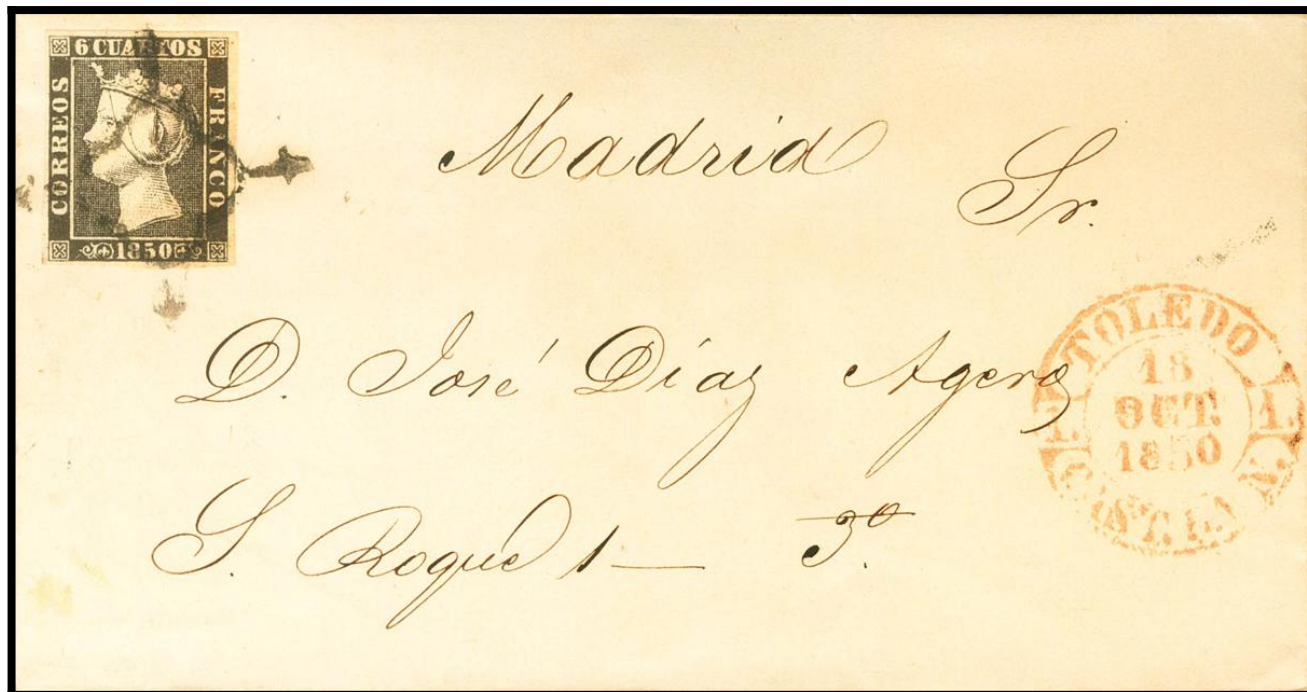 6 CUARTOS
CORREOS
FRANCO
1850
Madrid
Sr.
D. José Díaz Agero
S. Roque 1 — 3º.
TOLEDO
18
OCT.
1850
1.
1.
CAST. LA N.